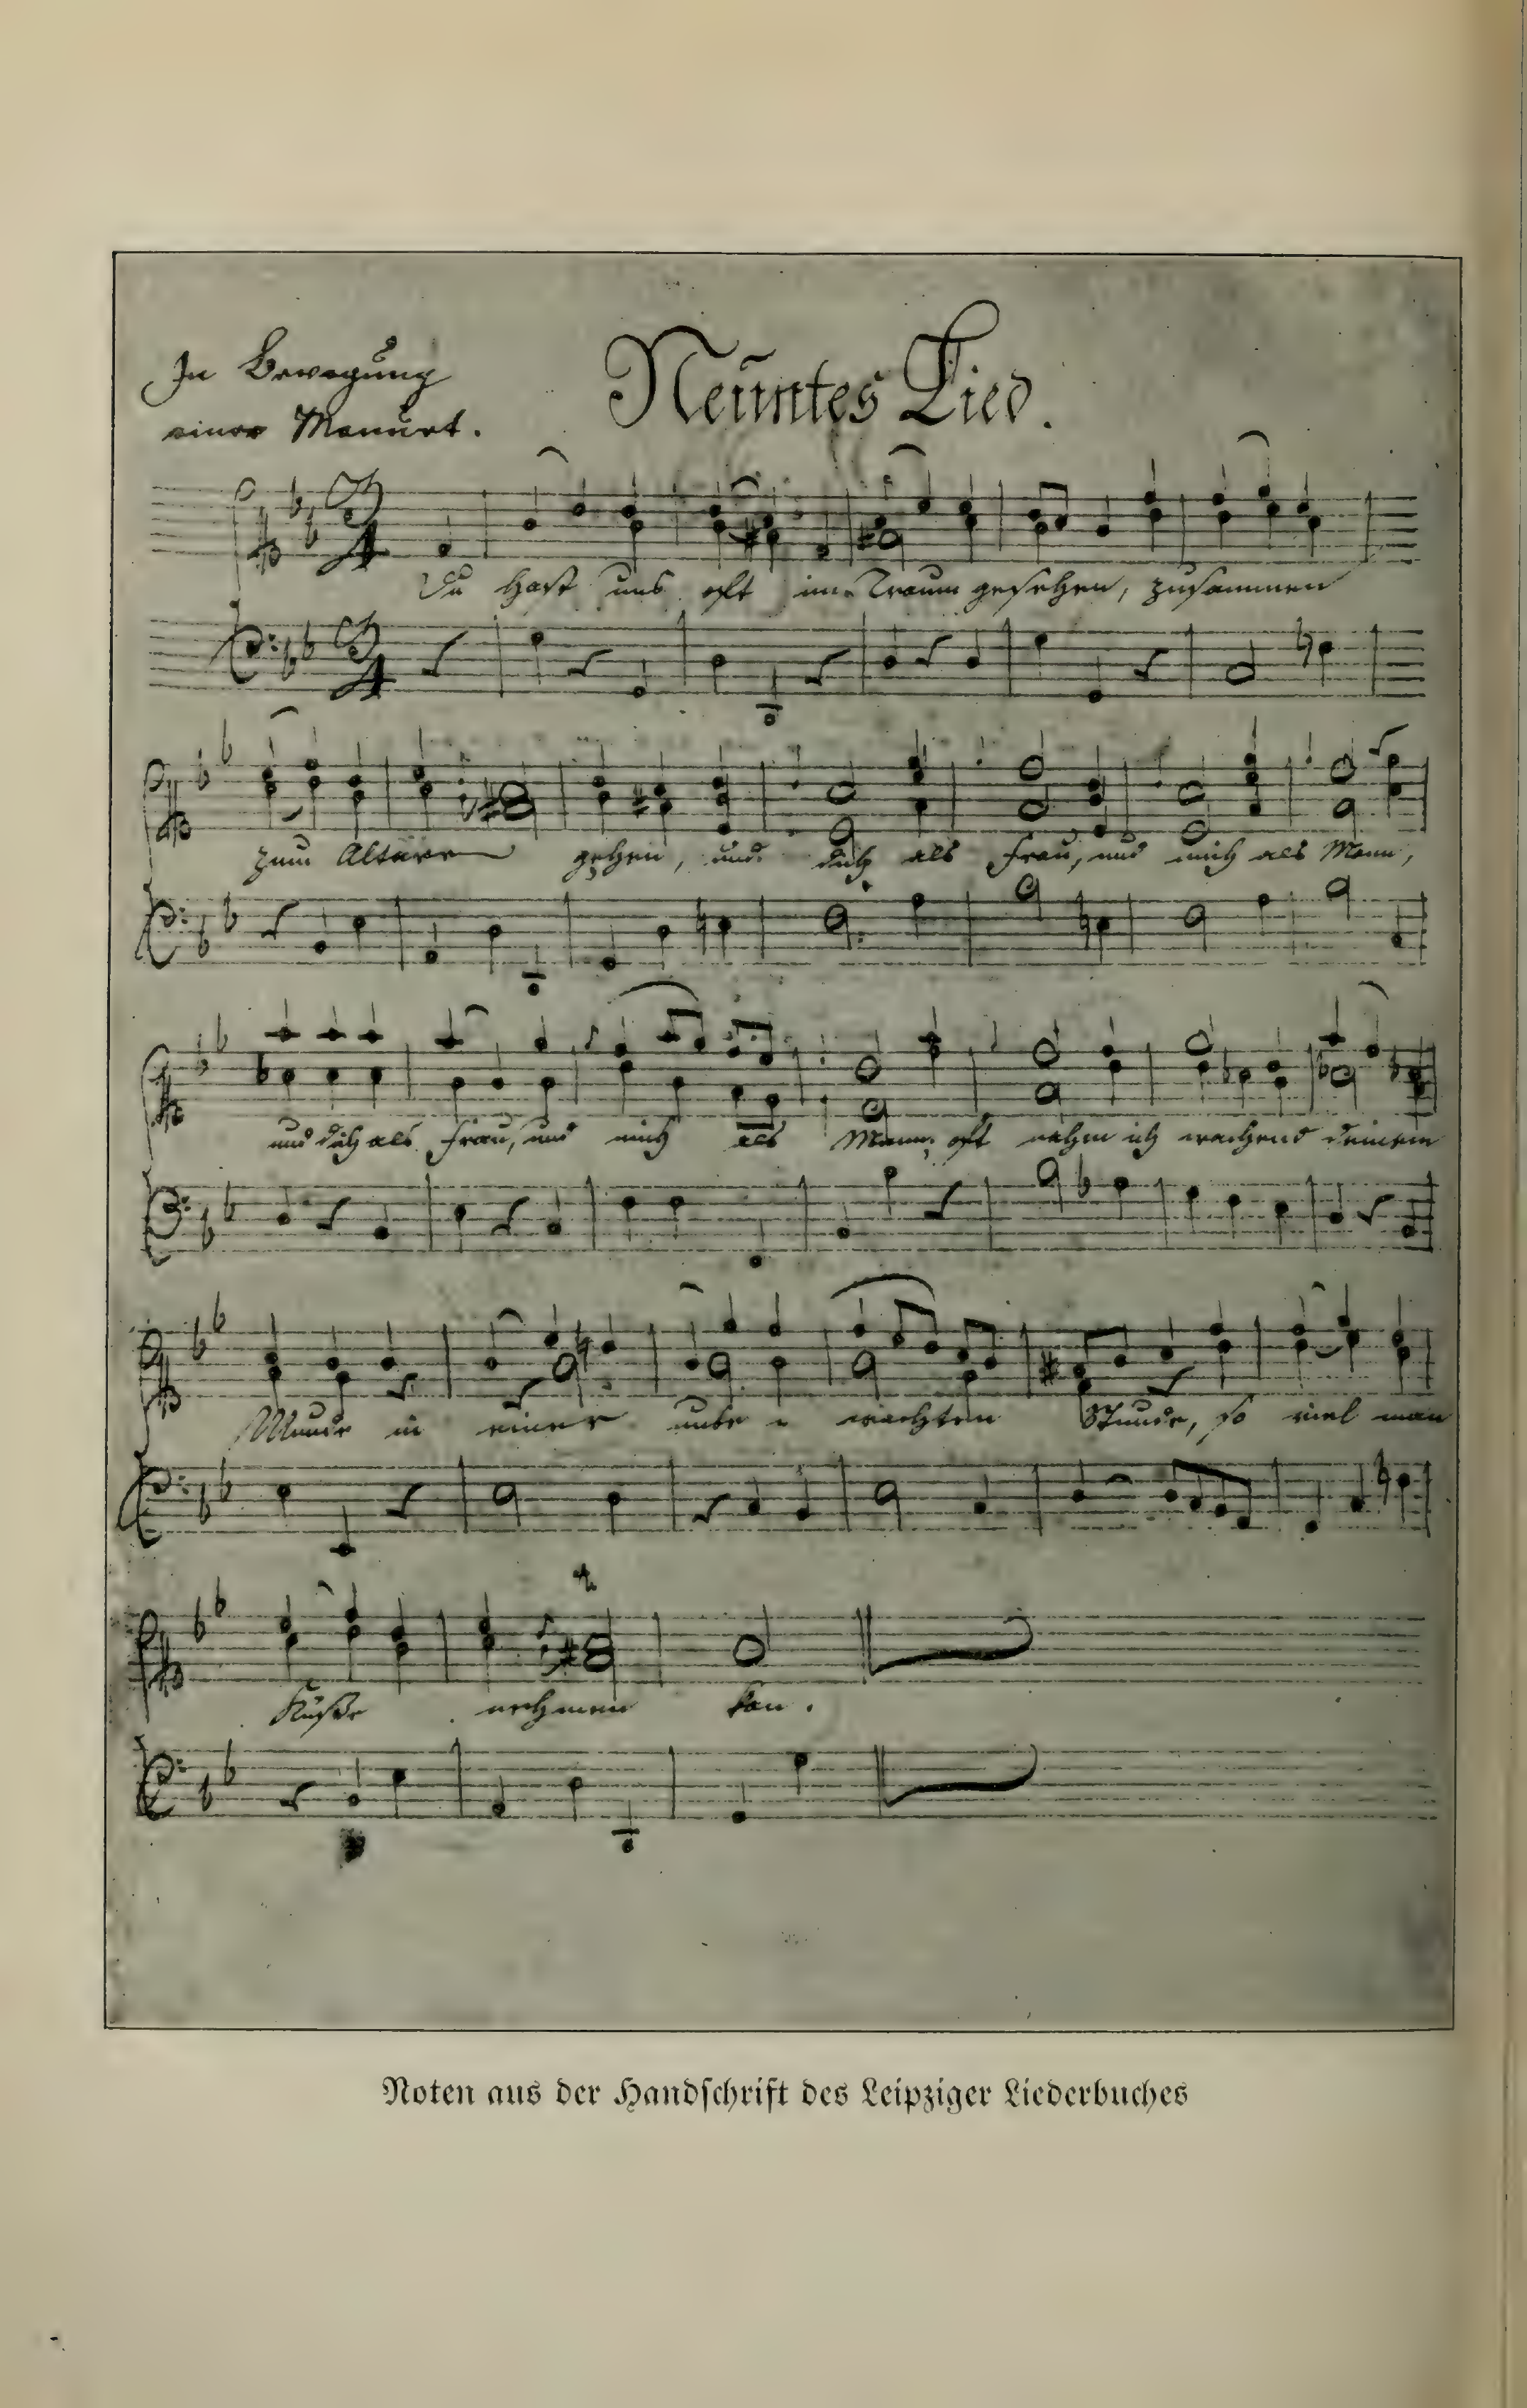 In Bewegung
einer Menuet.
Neuntes Lied.
3/4
Du hast uns oft im Traum gesehen, zusammen
3/4
zum Altare gehen, und dich als Frau, und mich als Mann,
und dich als Frau, und mich als Mann, oft nahm ich wachend deinem
Munde in einer unbe wachten Stunde, so viel man
Küße nehmen kan.
Noten aus der Handschrift des Leipziger Liederbuches